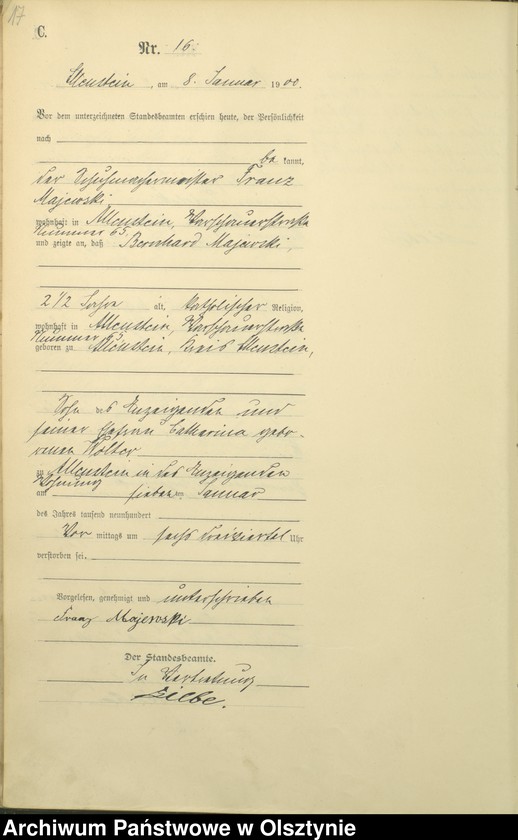 17
C.
Nr. 16.
Allenstein, am 8. Januar 1900.
Vor dem unterzeichneten Standesbeamten erschien heute, der Persönlichkeit
nach
be kannt,
der Schuhmachermeister Franz
Majewski
wohnhaft in Allenstein, Warschauerstraße
Nummer 63
und zeigte an, daß Bernhard Majewski,
2 1/2 Jahre alt, katholischer Religion,
wohnhaft in Allenstein, Warschauerstraße
Nummer
geboren zu Allenstein, Kreis Allenstein,
Sohn des Anzeigenden und
seiner Ehefrau Catharina gebo-
renen Wolter
zu Allenstein in des Anzeigenden
Wohnung
am sieben ten Januar
des Jahres tausend neunhundert
Vor mittags um sechs dreiviertel Uhr
verstorben sei.
Vorgelesen, genehmigt und unterschrieben
Franz Majewski
Der Standesbeamte.
In Vertretung
Archiwum Państwowe w Olsztynie